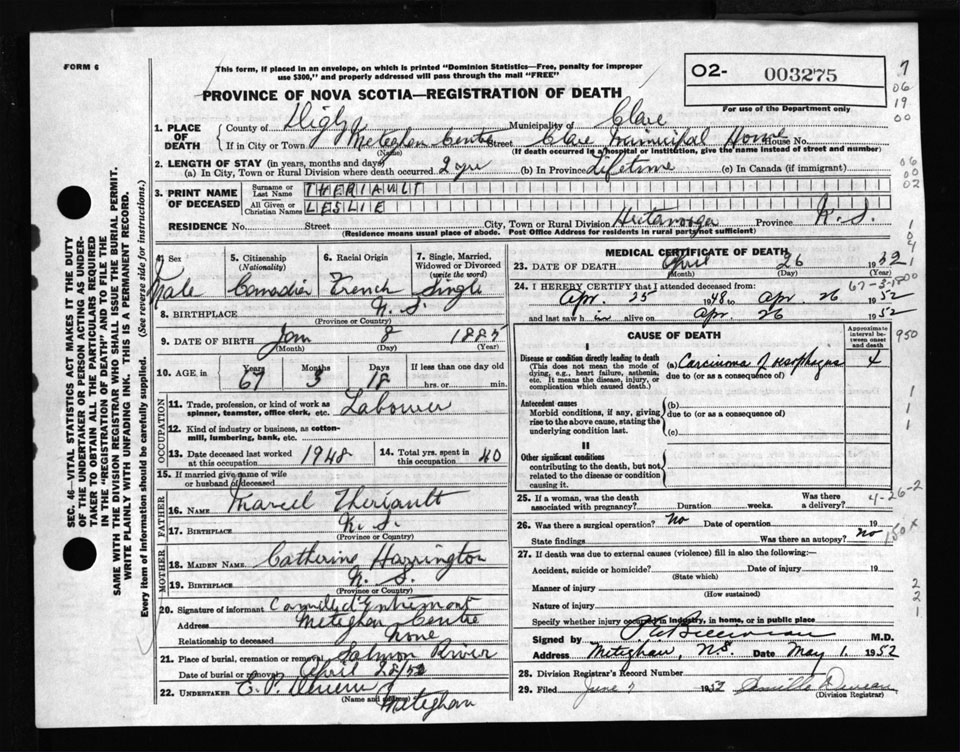 FORM 6
This form, if placed in an envelope, on which is printed "Dominion Statistics—Free, penalty for improper
use $300," and properly addressed will pass through the mail "FREE"
O2- 003275
7
06
19
00
PROVINCE OF NOVA SCOTIA—REGISTRATION OF DEATH
For use of the Department only
1. PLACE OF DEATH
County of Digby Municipality of Clare
If in City or Town Meteghan Centre Street Clare Municipal Home House No.
(Name) (If death occurred in a hospital or institution, give the name instead of street and number)
2. LENGTH OF STAY (in years, months and days)
(a) In City, Town or Rural Division where death occurred 2 yrs (b) In Province Lifetime (c) In Canada (if immigrant)
06
00
02
3. PRINT NAME OF DECEASED
Surname or Last Name THERIAULT
All Given or Christian Names LESLIE
RESIDENCE No. Street City, Town or Rural Division Province N.S.
(Residence means usual place of abode. Post Office Address for residents in rural parts not sufficient)
4. Sex Male
5. Citizenship (Nationality) Canadian
6. Racial Origin French
7. Single, Married, Widowed or Divorced (write the word) Single
8. BIRTHPLACE N.S.
(Province or Country)
9. DATE OF BIRTH Jan 8 1885
(Month) (Day) (Year)
10. AGE in Years Months Days If less than one day old
67 3 18 hrs. or min.
OCCUPATION
11. Trade, profession, or kind of work as spinner, teamster, office clerk, etc. Labourer
12. Kind of industry or business, as cotton-mill, lumbering, bank, etc.
13. Date deceased last worked at this occupation 1948
14. Total yrs. spent in this occupation 40
15. If married give name of wife or husband of deceased
FATHER
16. NAME Marcel Theriault
17. BIRTHPLACE N.S.
(Province or Country)
MOTHER
18. MAIDEN NAME Catherine Harrington
19. BIRTHPLACE N.S.
(Province or Country)
20. Signature of informant Camille d'Entremont
Address Meteghan Centre
Relationship to deceased None
21. Place of burial, cremation or removal Salmon River
Date of burial or removal April 28/52
22. UNDERTAKER
(Name and address)
Meteghan
MEDICAL CERTIFICATE OF DEATH
23. DATE OF DEATH April 26 1952
(Month) (Day) (Year)
24. I HEREBY CERTIFY that I attended deceased from: 67-3-18
Apr. 25 1948 to Apr. 26 1952
and last saw h im alive on Apr 26 1952
CAUSE OF DEATH
Approximate interval between onset and death
950
I
Disease or condition directly leading to death
(This does not mean the mode of dying, e.g., heart failure, asthenia, etc. It means the disease, injury, or complication which caused death.)
(a) Carcinoma of esophagus 4
due to (or as a consequence of)
Antecedent causes
Morbid conditions, if any, giving rise to the above cause, stating the underlying condition last.
(b)
due to (or as a consequence of)
(c)
II
Other significant conditions
contributing to the death, but not related to the disease or condition causing it.
25. If a woman, was the death associated with pregnancy? Duration weeks. Was there a delivery?
4-26-2
26. Was there a surgical operation? No Date of operation 19
State findings Was there an autopsy? No
150x
27. If death was due to external causes (violence) fill in also the following:—
Accident, suicide or homicide? Date of injury 19
(State which)
Manner of injury
(How sustained)
Nature of injury
Specify whether injury occurred in industry, in home, or in public place
2
2
1
Signed by M.D.
Address Meteghan, N.S. Date May 1. 1952
28. Division Registrar's Record Number
29. Filed June 1952
(Division Registrar)
SEC. 46—VITAL STATISTICS ACT MAKES IT THE DUTY
OF THE UNDERTAKER OR PERSON ACTING AS UNDER-
TAKER TO OBTAIN ALL THE PARTICULARS REQUIRED
IN THE "REGISTRATION OF DEATH" AND TO FILE THE
SAME WITH THE DIVISION REGISTRAR WHO SHALL ISSUE THE BURIAL PERMIT.
WRITE PLAINLY WITH UNFADING INK. THIS IS A PERMANENT RECORD.
Every item of information should be carefully supplied. (See reverse side for instructions.)